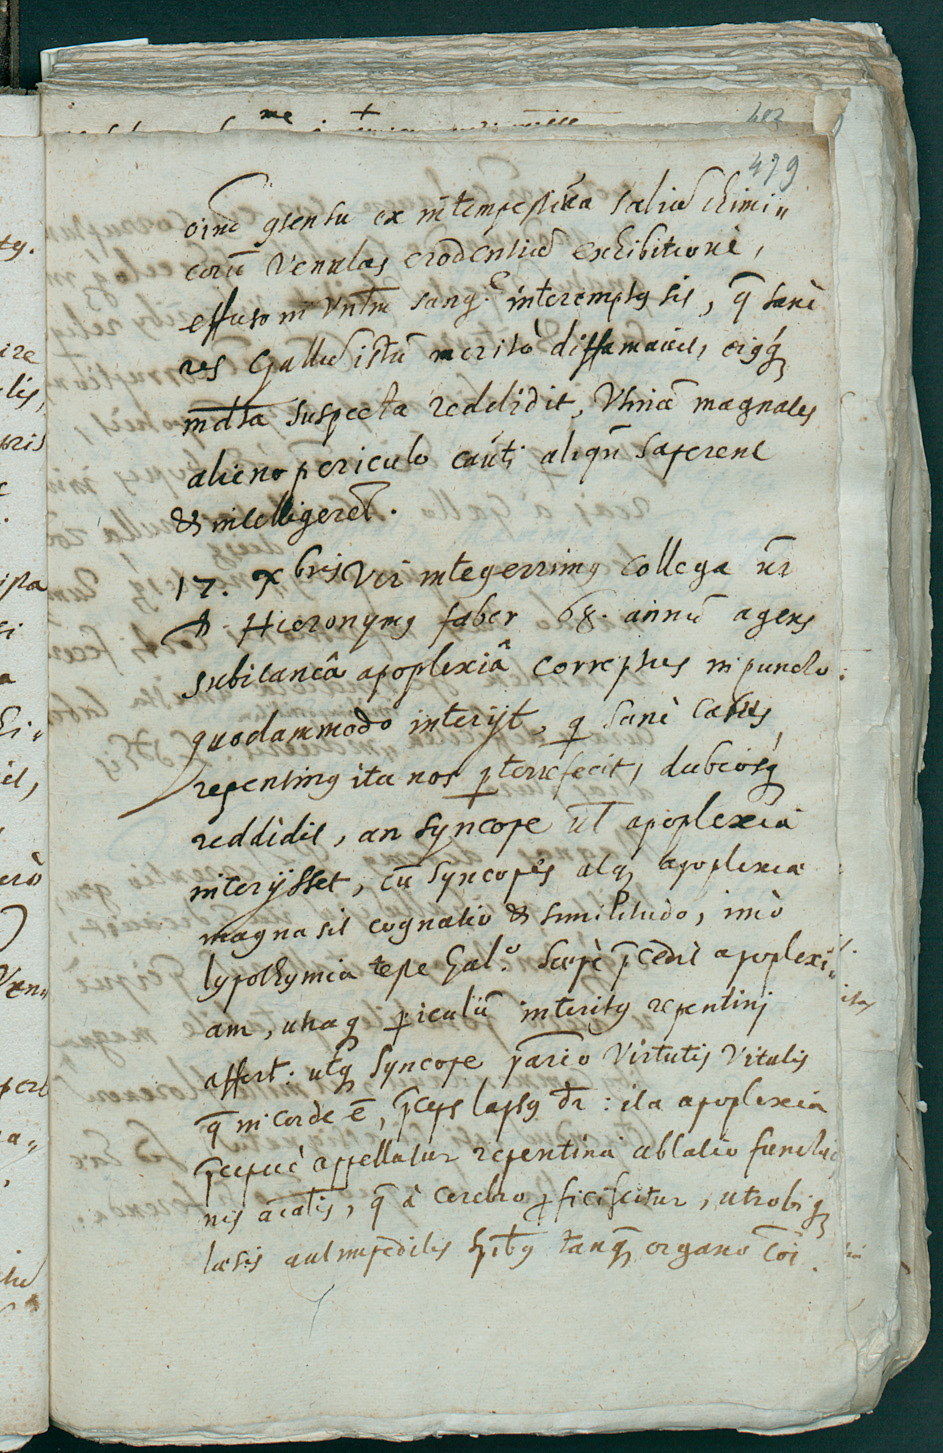 479
oīnō ɋsensu ex intempestiva saliū chimi„
corū venulas erodentiū exhibitione,
effuso in vntrm sangᵉ. interemptꝯ sit, q̄ sanè
res Gallū istū meritò diffamavit, eiꝯq̨
suspecta reddidit, Utinā magnates
alieno periculo cauti aliqn̄ saperent
& intelligerēt.
17. Xbris Vir integerrimꝯ collega nr̄
D. Hieronymꝯ faber 68. annū agens
subitaneâ apoplexiâ correptus in puncto
quodammodo interijt, q sanè casus
repentinꝯ ita nos ꝑterrefecit, dubiosq̨
reddidit, an syncope ūl apoplexia
interijsset, cū syncopes atq̨ apoplexia
magna sit cognatio & similitudo, imò
lypothymia teste Gal°. saepè p̄cedit apoplexi„
am, utraq̨ ꝑiculū interitꝯ repentini
affert: utq̨ syncope virtutis vitalis
q̄ in corde ē, p̄ceps lapsꝯ dr̄: ita apoplexia
appellatur repentina ablatio functio
nis āīatis, q̄ à cerebro ꝓficiscitur, utrobiq̨
laesis aut impeditis tanq̨ organo cōi.